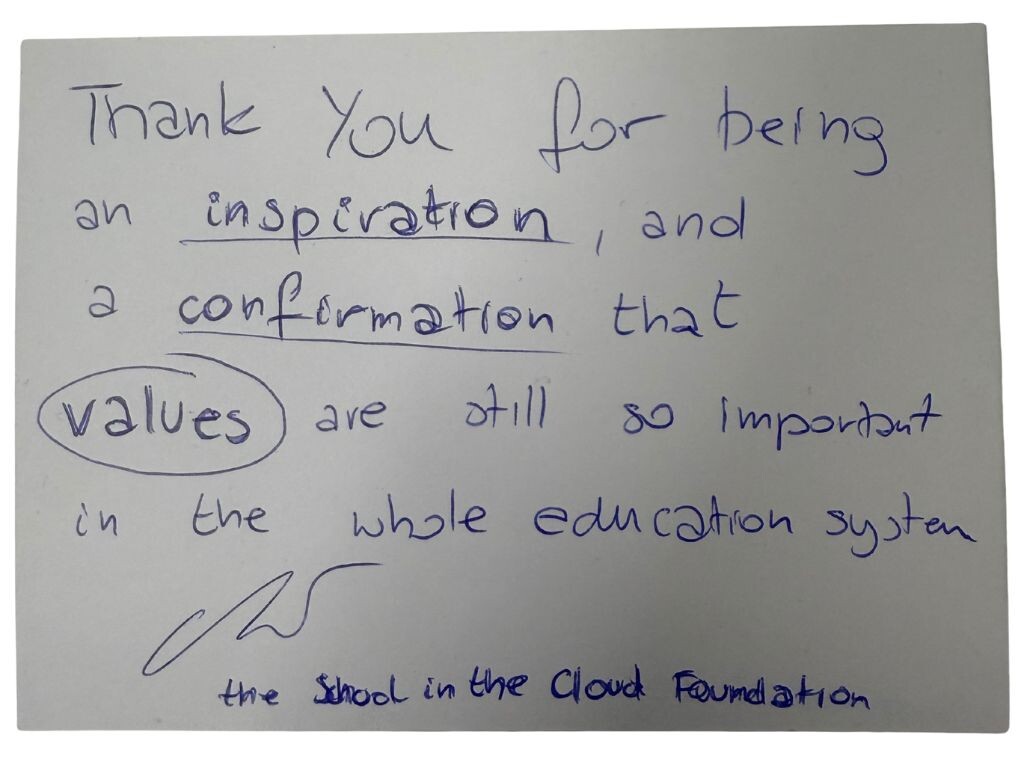 Thank You for being
an inspiration, and
a confirmation that
values are still so important
in the whole education system
the School in the Cloud Foundation